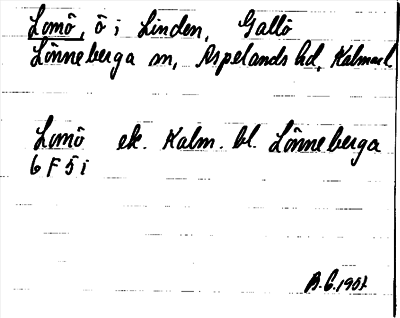 Lomö, ö i Linden, Gallö
Lönneberga sn, Aspelands hd, Kalmar l.
Lomö ek. Kalm. bl. Lönneberga
6 F 5 i